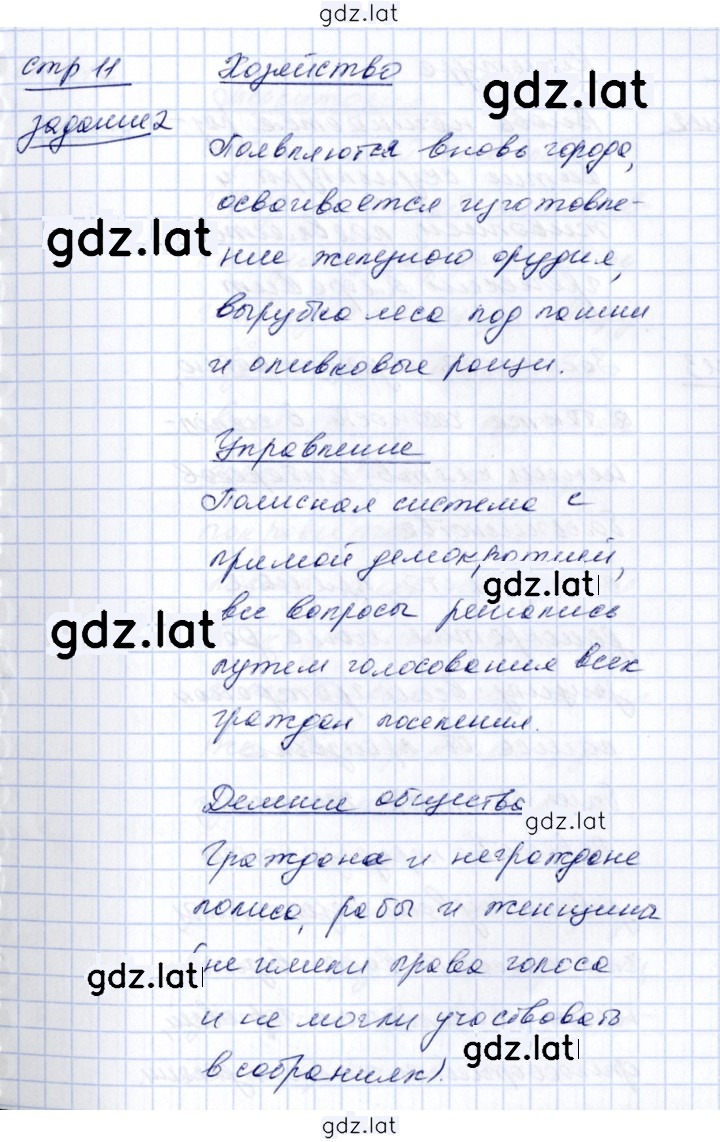 gdz.lat
стр 11 Хозяйство
gdz.lat
задание 2
Появляются вновь города,
осваивается изготовле-
gdz.lat
ние железного орудия,
вырубка леса под пашни
и оливковые рощи.
Управление
Полисная система с
прямой демократией,
gdz.lat
все вопросы решались
gdz.lat
путем голосования всех
граждан поселения.
Деление общества
gdz.lat
Граждана и неграждане
полиса, рабы и женщина
(не имели права голоса
gdz.lat
и не могли участвовать
gdz.lat
в собраниях).
gdz.lat